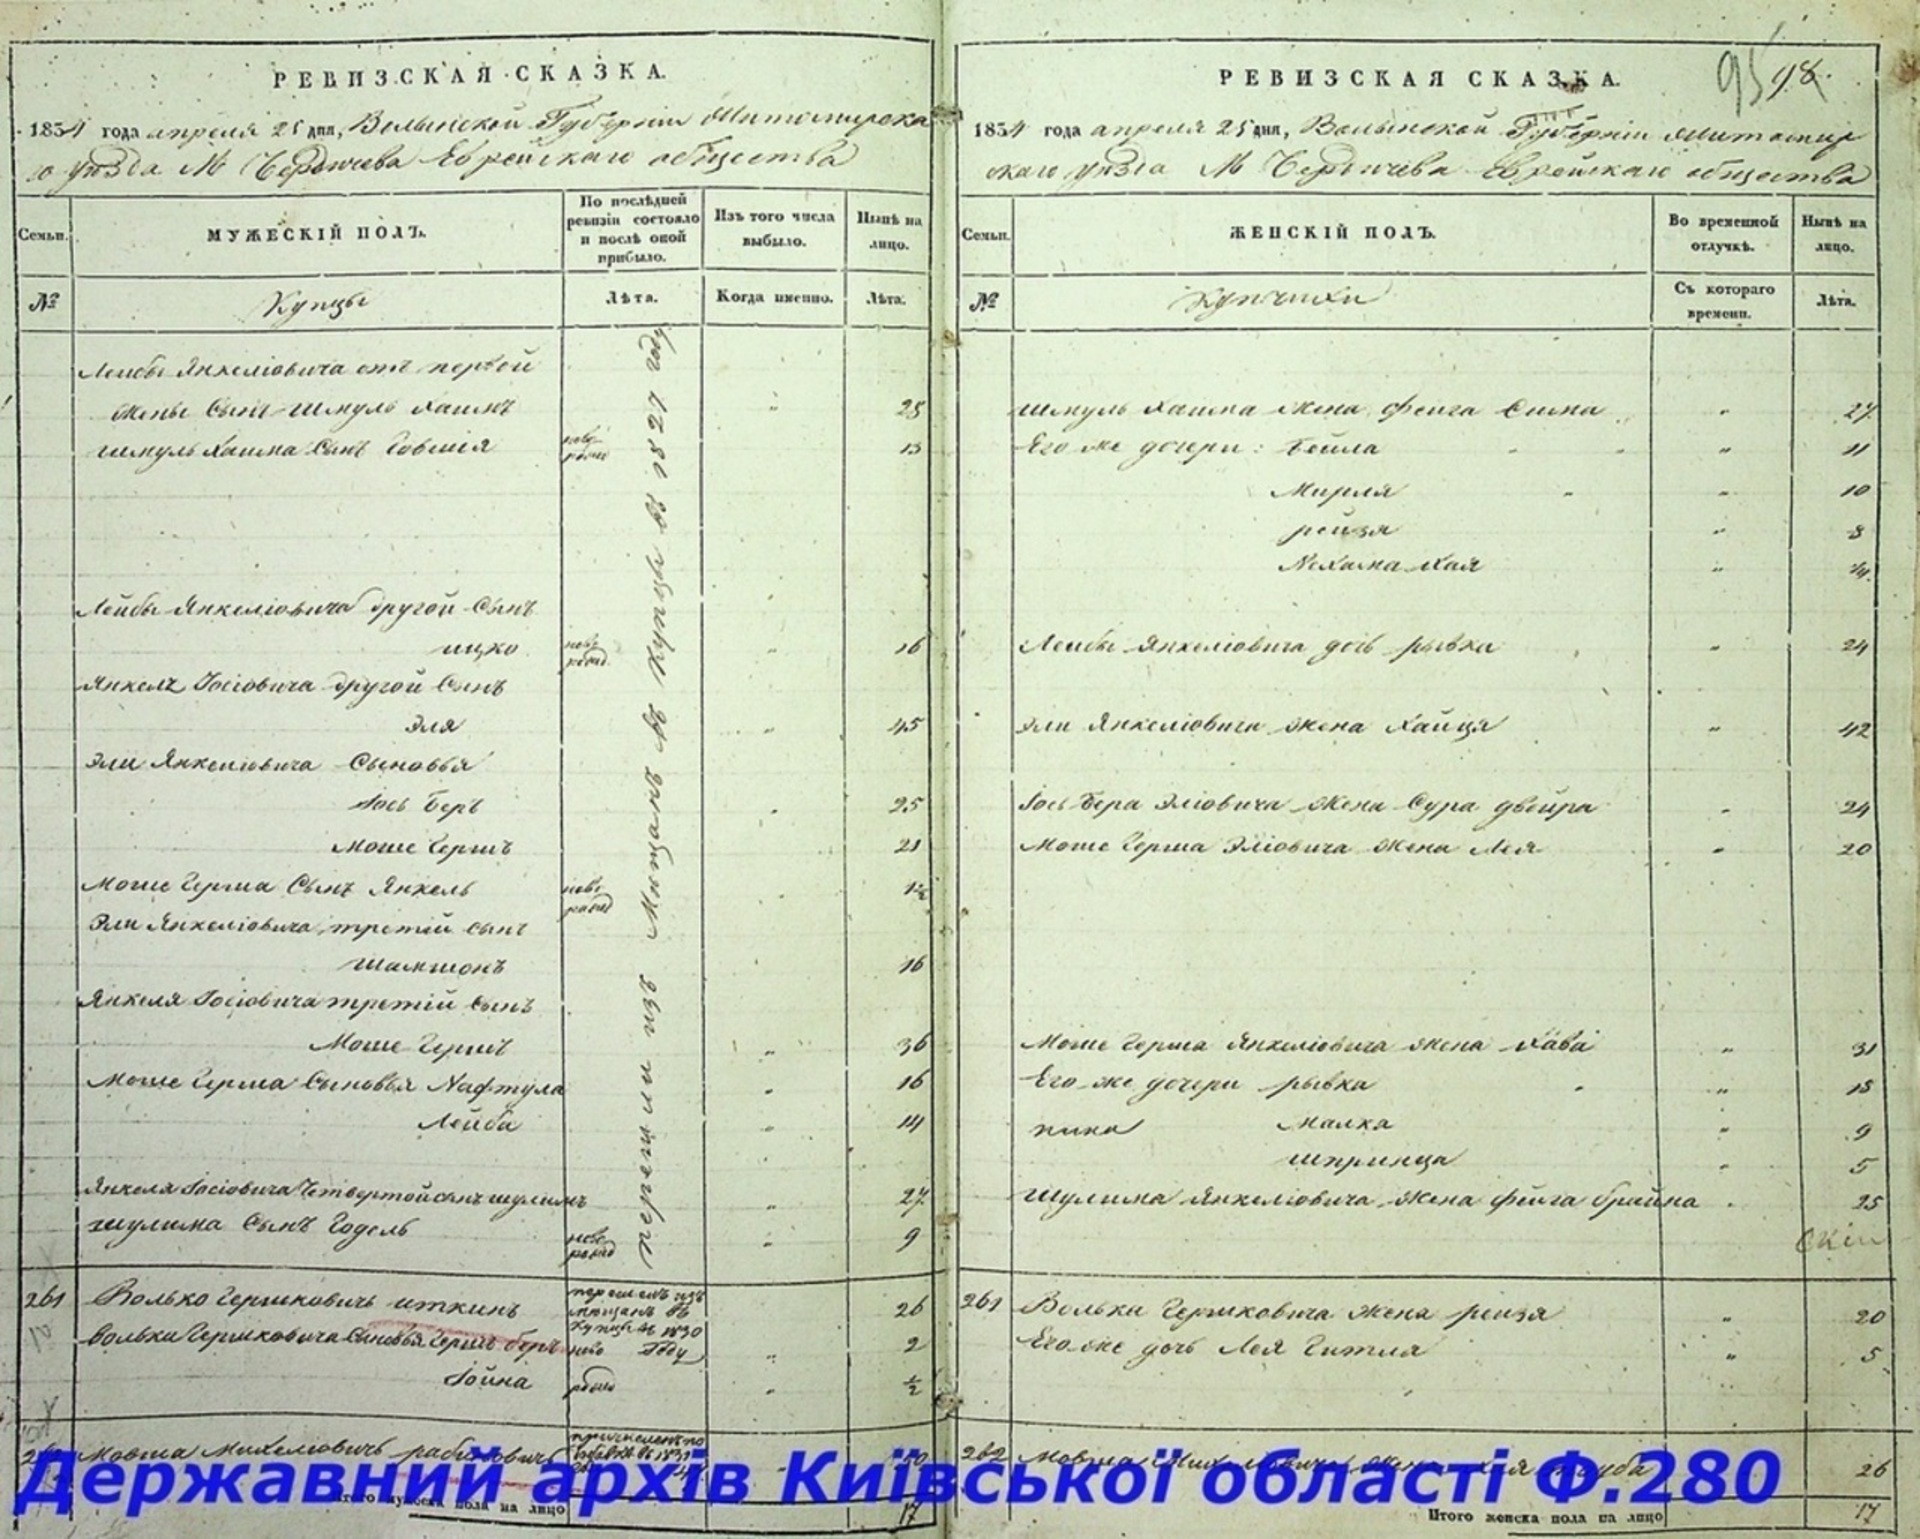 РЕВИЗСКАЯ СКАЗКА.
1834 года апреля 25 дня, Волынской Губерніи Житомирска
го уѣзда М Бердичева Еврейскаго общества
Семьи.
МУЖЕСКІЙ ПОЛЪ.
По послѣдней ревизіи состояло и послѣ оной прибыло.
Изъ того числа выбыло.
Нынѣ на лицо.
№
Купцы
Лѣта.
Когда именно.
Лѣта.
перешли изъ Мещанъ въ Купцы въ 1827 году
Лейбы Янкеліовича отъ первой
жены Сынъ Шмуль Хаимъ " 28
Шмуль Хаима Сынъ Говшія ново рожд 13
Лейбы Янкеліовича другой Сынъ
ицко ново рожд " 16
Янкеля Іосіовича другой Сынъ
Эля " 45
Эли Янкеліовича Сыновья
Іось Беръ " 25
Моше Гершъ 21
Моше Герша Сынъ Янкель ново рожд 1½
Эли Янкеліовича третій сынъ
Шамшонъ 16
Янкеля Іосіовича третій сынъ
Моше Гершъ " 36
Моше Герша Сыновья Нафтула " 16
Лейба " 14
Янкеля Іосіовича Четвертой сынъ шулимъ " 27
шулима Сынъ Годель ново рожд " 9
261 Волько Гершковичъ иткинъ перешелъ изъ мещанъ въ купцы въ 1830 Году 26
Волька Гершковича Сыновья Гершъ беръ ново " 2
Іойна рожд " ½
262 Мовша Михелювичъ рабиновичъ
Итого мужеска пола на лицо 17
РЕВИЗСКАЯ СКАЗКА.
95 98.
1834 года апреля 25 дня, Волынской Губерніи Житомир
скаго уѣзда М Бердичева Еврейскаго общества
Семьи.
ЖЕНСКІЙ ПОЛЪ.
Во временной отлучкѣ.
Нынѣ на лицо.
№
Купчихи
Съ котораго времени.
Лѣта.
Шмуль Хаима жена фейга Сима " 27
Его же дочери: Бейла " 11
Мирля " 10
рейзя " 8
Нехама Хая "
Лейбы Янкеліовича дочь рывка " 24
Эли Янкеліовича жена Хайця " 42
Іось Бера Эліовича жена Сура двейра " 24
Моше Герша Эліовича жена Лея " 20
Моше Герша Янкеліовича жена Хава " 31
Его же дочери рывка " 18
Малка " 9
шпринца " 5
Шулима Янкеліовича жена фейга брайна 25
261 Волька Гершковича жена рейзя " 20
Его же дочь Лея Гитля " 5
262 Мовша 26
Итого женска пола на лицо 17
Державний архів Київської області Ф.280